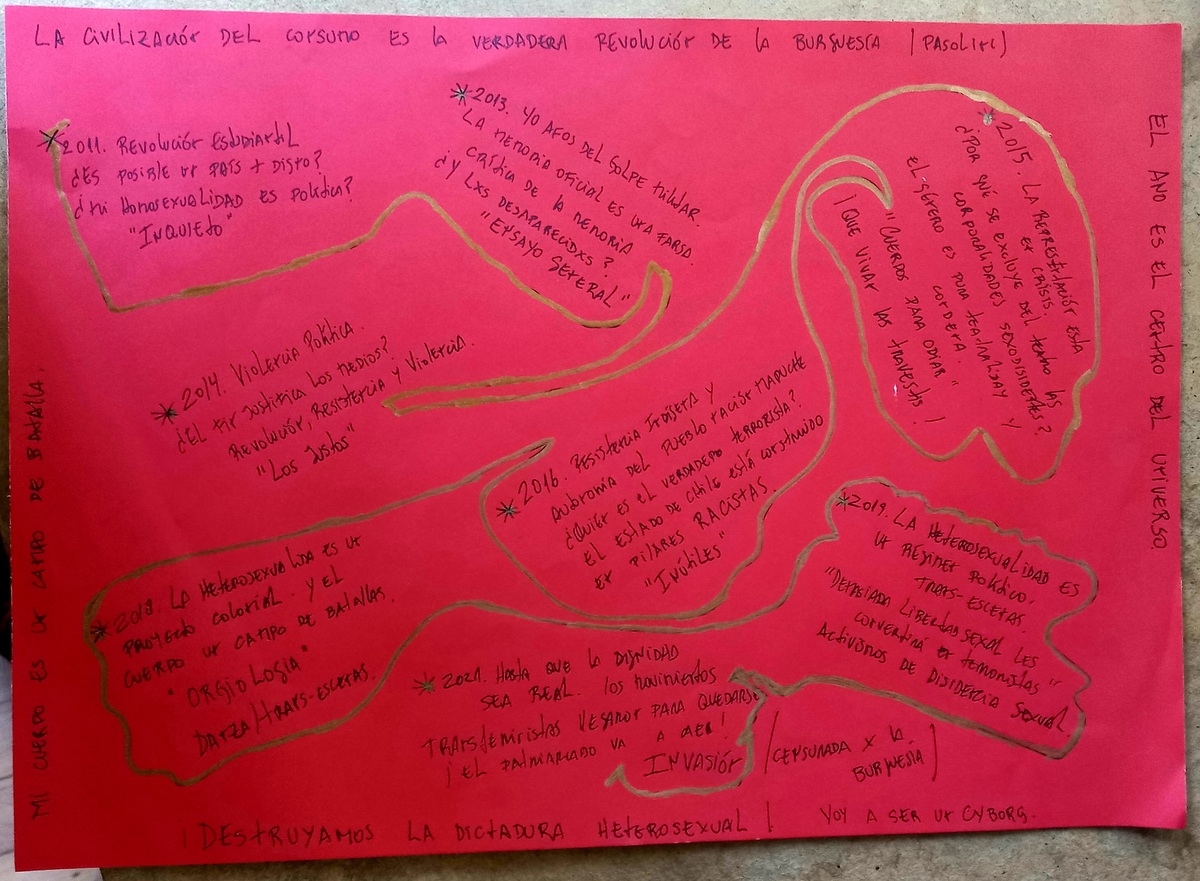 LA CIVILIZACIÓN DEL CONSUMO ES LA VERDADERA REVOLUCIÓN DE LA BURGUESÍA (PASOLINI)
2011. REVOLUCIÓN ESTUDIANTIL
¿ES POSIBLE UN PAÍS + DISTO?
¿MI HOMOSEXUALIDAD ES POLÍTICA?
"INQUIETO"
2013. 40 AÑOS DEL GOLPE MILITAR.
LA MEMORIA OFICIAL ES UNA FARSA.
CRÍTICA DE LA MEMORIA
¿Y LXS DESAPARECIDXS?
"ENSAYO GENERAL"
2015. LA REPRESENTACIÓN ESTÁ
EN CRISIS.
¿POR QUÉ SE EXCLUYE DEL TEATRO LAS
CORPORALIDADES SEXODISIDENTES? Y
EL GÉNERO ES PURA TEATRALIDAD Y
CORDERA.
"CUERPOS PARA ODIAR"
¡QUE VIVAN LAS TRAVESTIS!
2014. VIOLENCIA POLÍTICA.
¿EL FIN JUSTIFICA LOS MEDIOS?
REVOLUCIÓN, RESISTENCIA Y VIOLENCIA.
"LOS JUSTOS"
2016. RESISTENCIA INDÍGENA Y
AUTONOMÍA DEL PUEBLO NACIÓN MAPUCHE
¿QUIÉN ES EL VERDADERO TERRORISTA?
EL ESTADO DE CHILE ESTÁ CONSTRUIDO
EN PILARES RACISTAS.
"INÚTILES"
2018. LA HETEROSEXUALIDA ES UN
PROYECTO COLONIAL. Y EL
CUERPO UN CAMPO DE BATALLAS.
"ORGIOLOGÍA"
DANZA/TRANS-ESCENAS.
2019. LA HETEROSEXUALIDAD ES
UN RÉGIMEN POLÍTICO.
TRANS-ESCENAS.
"DEMASIADA LIBERTAD SEXUAL LES
CONVERTIRÁ EN TERRORISTAS"
ACTIVISMOS DE DISIDENCIA SEXUAL.
2021. HASTA QUE LA DIGNIDAD
SEA REAL. LOS MOVIMIENTOS
TRANSFEMINISTAS VEGANOR PARA QUEDARSE
¡EL PATRIARCADO VA A CAER!
INVASIÓN (CENSURADA X LA
BURGUESÍA)
¡DESTRUYAMOS LA DICTADURA HETEROSEXUAL! VOY A SER UN CYBORG.
MI CUERPO ES UN CAMPO DE BATALLA.
EL ANO ES EL CENTRO DEL UNIVERSO